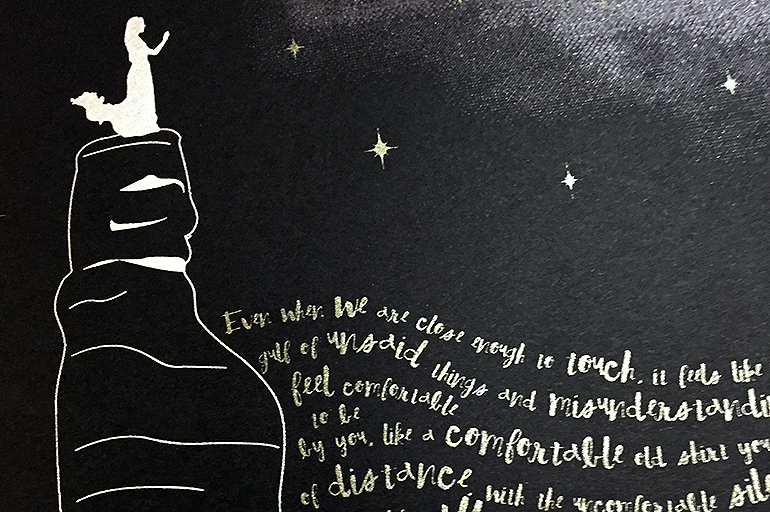 Even when we are close enough to touch, it feels like
gulf of unsaid things and misunderstandin
feel comfortable
to be
by you, like a comfortable old shirt you
of distance, with the uncomfortable sile